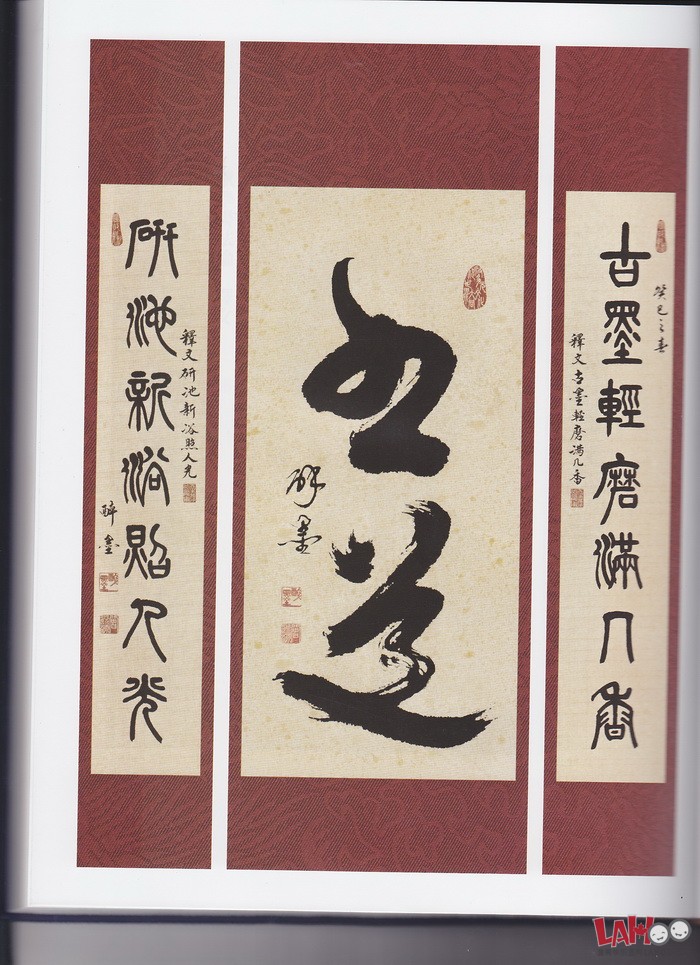 癸巳之春
古墨輕磨滿几香
釋文古墨輕磨滿几香
書道
醉墨
釋文研池新浴照人光
研池新浴照人光
醉墨
LAHOO